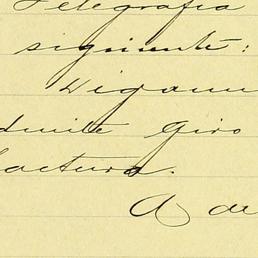 Telegrafía
siguiente:
Digam
dmite giro
factura.
A de